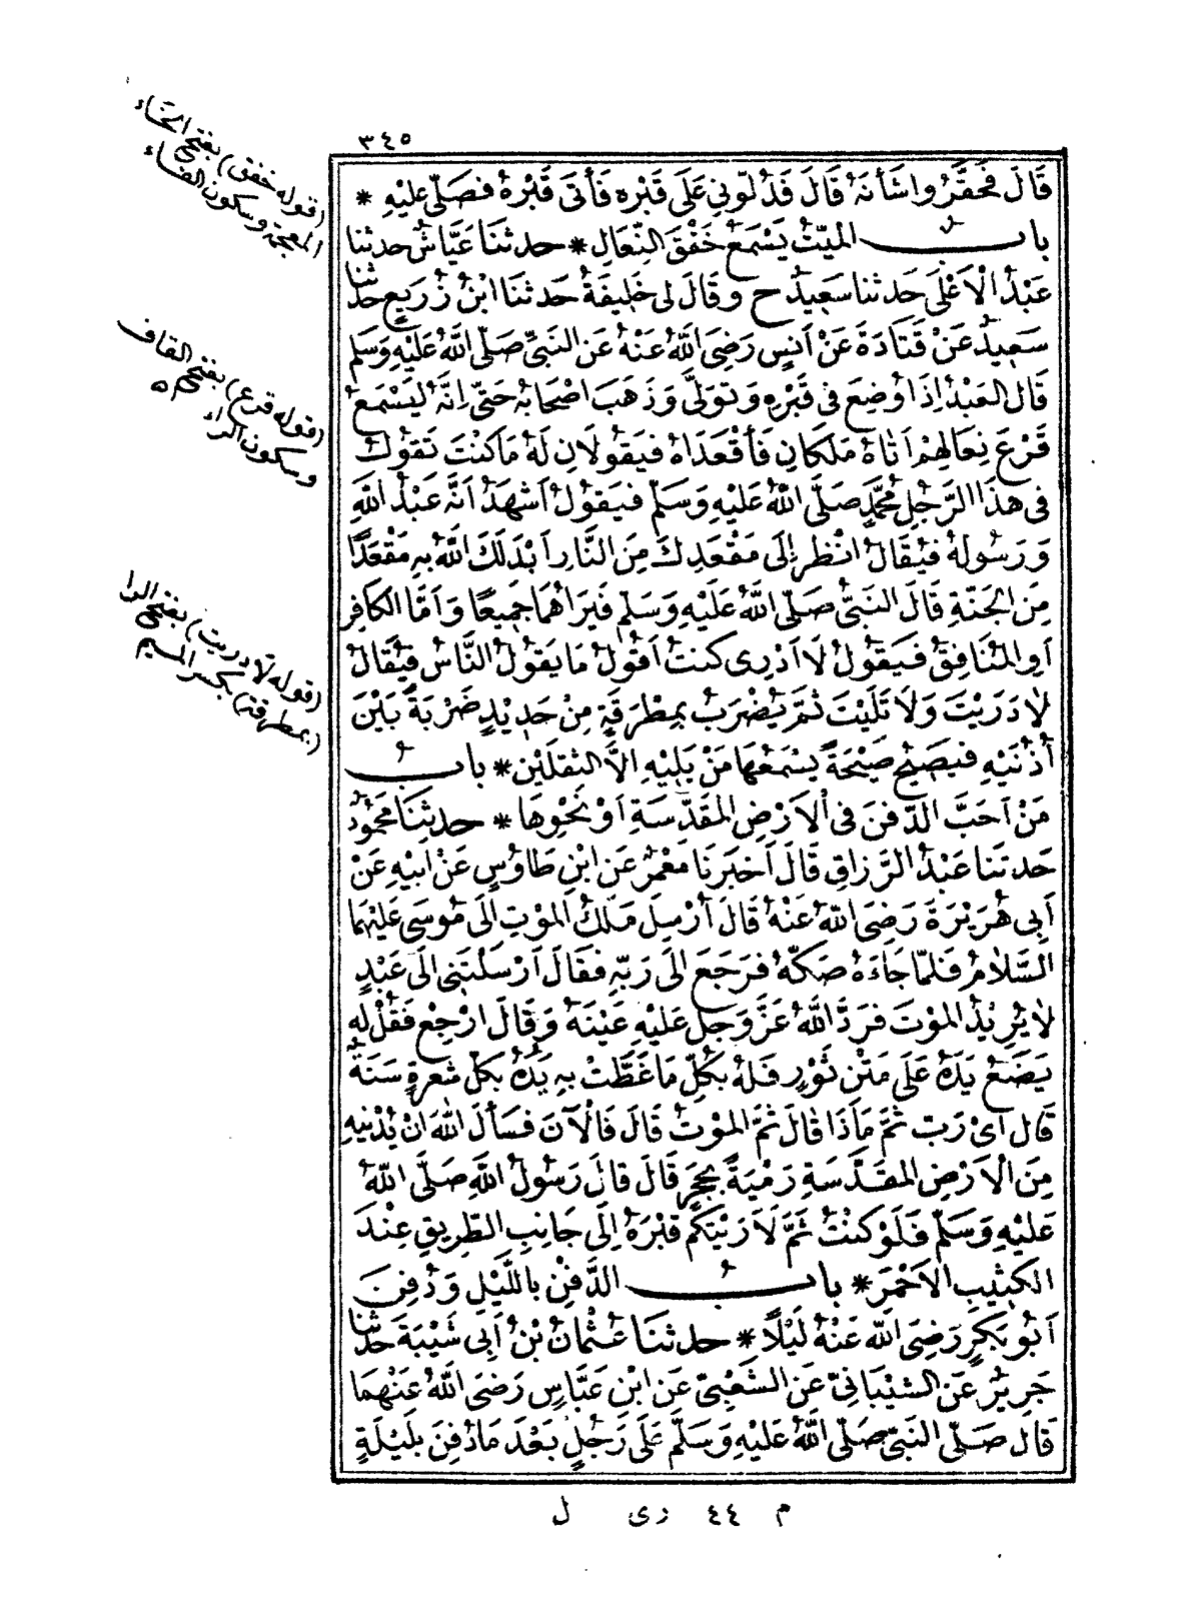 ٣٤٥
قَالَ فَحَقَّرُوا شَأْنَهُ قَالَ فَدُلُّونِي عَلَى قَبْرِهِ فَأَتَى قَبْرَهُ فَصَلَّى عَلَيْهِ *
بابُ المَيِّتُ يَسْمَعُ خَفْقَ النِّعَالِ * حدثنا عَيَّاشٌ حدثنا
عَبْدُ الْأَعْلَى حَدثنا سَعِيدٌ ح وقَالَ لِي خَلِيفَةُ حَدثنَا ابْنُ زُرَيعٍ حدثنا
سَعِيدٌ عَنْ قَتَادَةَ عَنْ أَنَسٍ رَضِيَ اللَّهُ عَنْهُ عَنِ النَّبِيِّ صَلَّى اللَّهُ عَلَيْهِ وَسَلَّم
قَالَ العَبْدُ إِذَا وُضِعَ فِي قَبْرِهِ وَتُوَلِّيَ وَذَهَبَ أَصْحَابُهُ حَتَّى إِنَّهُ لَيَسْمَعُ
قَرْعَ نِعَالِهِمْ أَتَاهُ مَلَكَانِ فَأَقْعَدَاهُ فَيَقُولَانِ لَهُ مَا كُنْتَ تَقُولُ
فِي هذَا الرَّجُلِ مُحَمَّدٍ صَلَّى اللَّهُ عَلَيْهِ وَسَلَّم فَيَقُولُ أَشْهَدُ أَنَّهُ عَبْدُ اللَّهِ
وَرَسُولُهُ فَيُقَالُ انْظُر إِلَى مَقْعَدِكَ مِنَ النَّارِ أَبْدَلَكَ اللَّهُ بِهِ مَقْعَدًا
مِنَ الجَنَّةِ قَالَ النَّبِيُّ صَلَّى اللَّهُ عَلَيْهِ وَسَلَّم فَيَرَاهُمَا جَمِيعًا وَأَمَّا الكَافِر
أَوِ المُنَافِقُ فَيَقُولُ لَا أَدْرِي كُنْتُ أَقُولُ مَا يَقُولُ النَّاسُ فَيُقَالُ
لَا دَرَيْتَ وَلَا تَلَيْتَ ثُمَّ يُضْرَبُ بِمِطْرَقَةٍ مِنْ حَدِيدٍ ضَرْبَةً بَيْنَ
أُذُنَيْهِ فَيَصِيحُ صَيْحَةً يَسْمَعُهَا مَنْ يَلِيهِ إِلَّا الثَّقَلَيْنِ * بابُ
مَنْ أَحَبَّ الدَّفْنَ فِي الْأَرْضِ المُقَدَّسَةِ أَوْ نَحْوِهَا * حدثنَا مَحْمُودٌ
حَدثنَا عَبْدُ الرَّزَاقِ قَالَ أَخْبَرَنَا مَعْمَرٌ عَنِ ابْنِ طَاوُسٍ عَنْ أَبِيهِ عَنْ
أَبِي هُرَيْرَةَ رَضِيَ اللَّهُ عَنْهُ قَالَ أُرْسِلَ مَلَكُ المَوْتِ إِلَى مُوسَى عَلَيْهِمَا
السَّلَامُ فَلَمَّا جَاءَهُ صَكَّهُ فَرَجَعَ إِلَى رَبِّهِ فَقَالَ أَرْسَلْتَنِي إِلَى عَبْدٍ
لَا يُرِيدُ المَوْتَ فَرَدَّ اللَّهُ عَزَّ وَجَلَّ عَلَيْهِ عَيْنَهُ وَقَالَ ارْجِعْ فَقُلْ لَهُ
يَضَعُ يَدَهُ عَلَى مَتْنِ ثَوْرٍ فَلَهُ بِكُلِّ مَا غَطَّتْ بِهِ يَدُهُ بِكُلِّ شَعْرَةٍ سَنَةٌ
قَالَ أَيْ رَبِّ ثُمَّ مَاذَا قَالَ ثُمَّ المَوْتُ قَالَ فَالْآنَ فَسَأَلَ اللَّهَ أَنْ يُدْنِيَهُ
مِنَ الْأَرْضِ المُقَدَّسَةِ رَمْيَةً بِحَجَرٍ قَالَ قَالَ رَسُولُ اللَّهِ صَلَّى اللَّهُ
عَلَيْهِ وَسَلَّمَ فَلَوْ كُنْتُ ثَمَّ لَأَرَيْتُكُمْ قَبْرَهُ إِلَى جَانِبِ الطَّرِيقِ عِنْدَ
الكَثِيبِ الْأَحْمَرِ * بابُ الدَّفْنِ بِاللَّيْلِ وَدُفِنَ
أَبُو بَكْرٍ رَضِيَ اللَّهُ عَنْهُ لَيْلًا * حدثنَا عُثْمَانُ بْنُ أَبِي شَيْبَةَ حَدثنا
جَرِيرٌ عَنِ الشَّيْبَانِيِّ عَنِ الشَّعْبِيِّ عَنِ ابْنِ عَبَّاسٍ رَضِيَ اللَّهُ عَنْهُمَا
قَالَ صَلَّى النَّبِيُّ صَلَّى اللَّهُ عَلَيْهِ وَسَلَّمَ عَلَى رَجُلٍ بَعْدَ مَا دُفِنَ بِلَيْلَةٍ
(قوله خفق) بفتح الخاء
المعجمة وسكون الفاء
(قوله قرع) بفتح القاف
وسكون الراء
(قوله لا دريت) بفتح الرا
(بمطرقة) بكسر الميم
م ٤٤ رى ل